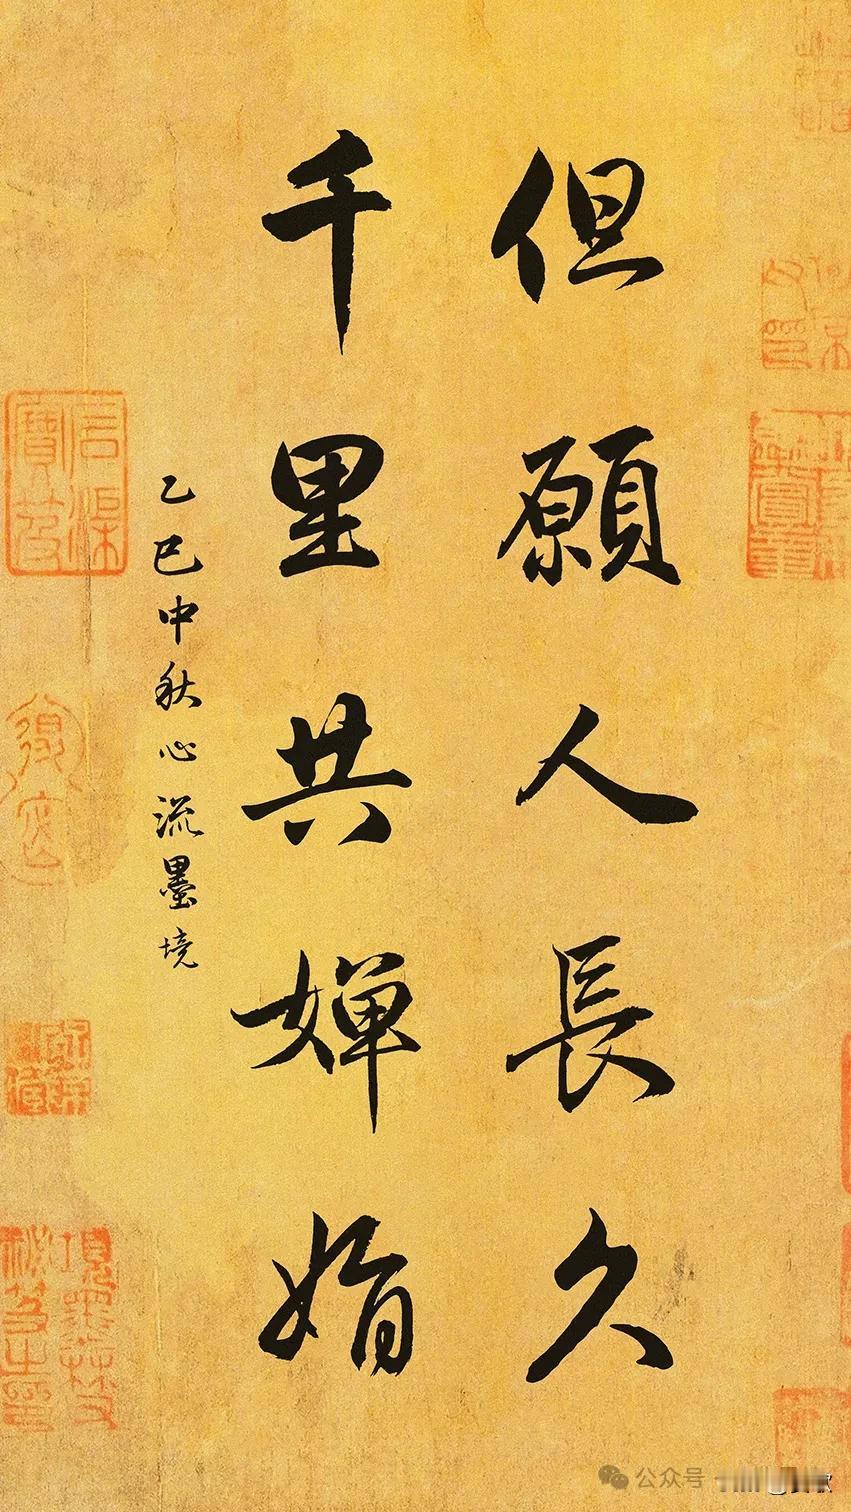 但願人長久
千里共嬋娟
乙巳中秋心流墨境
公众号